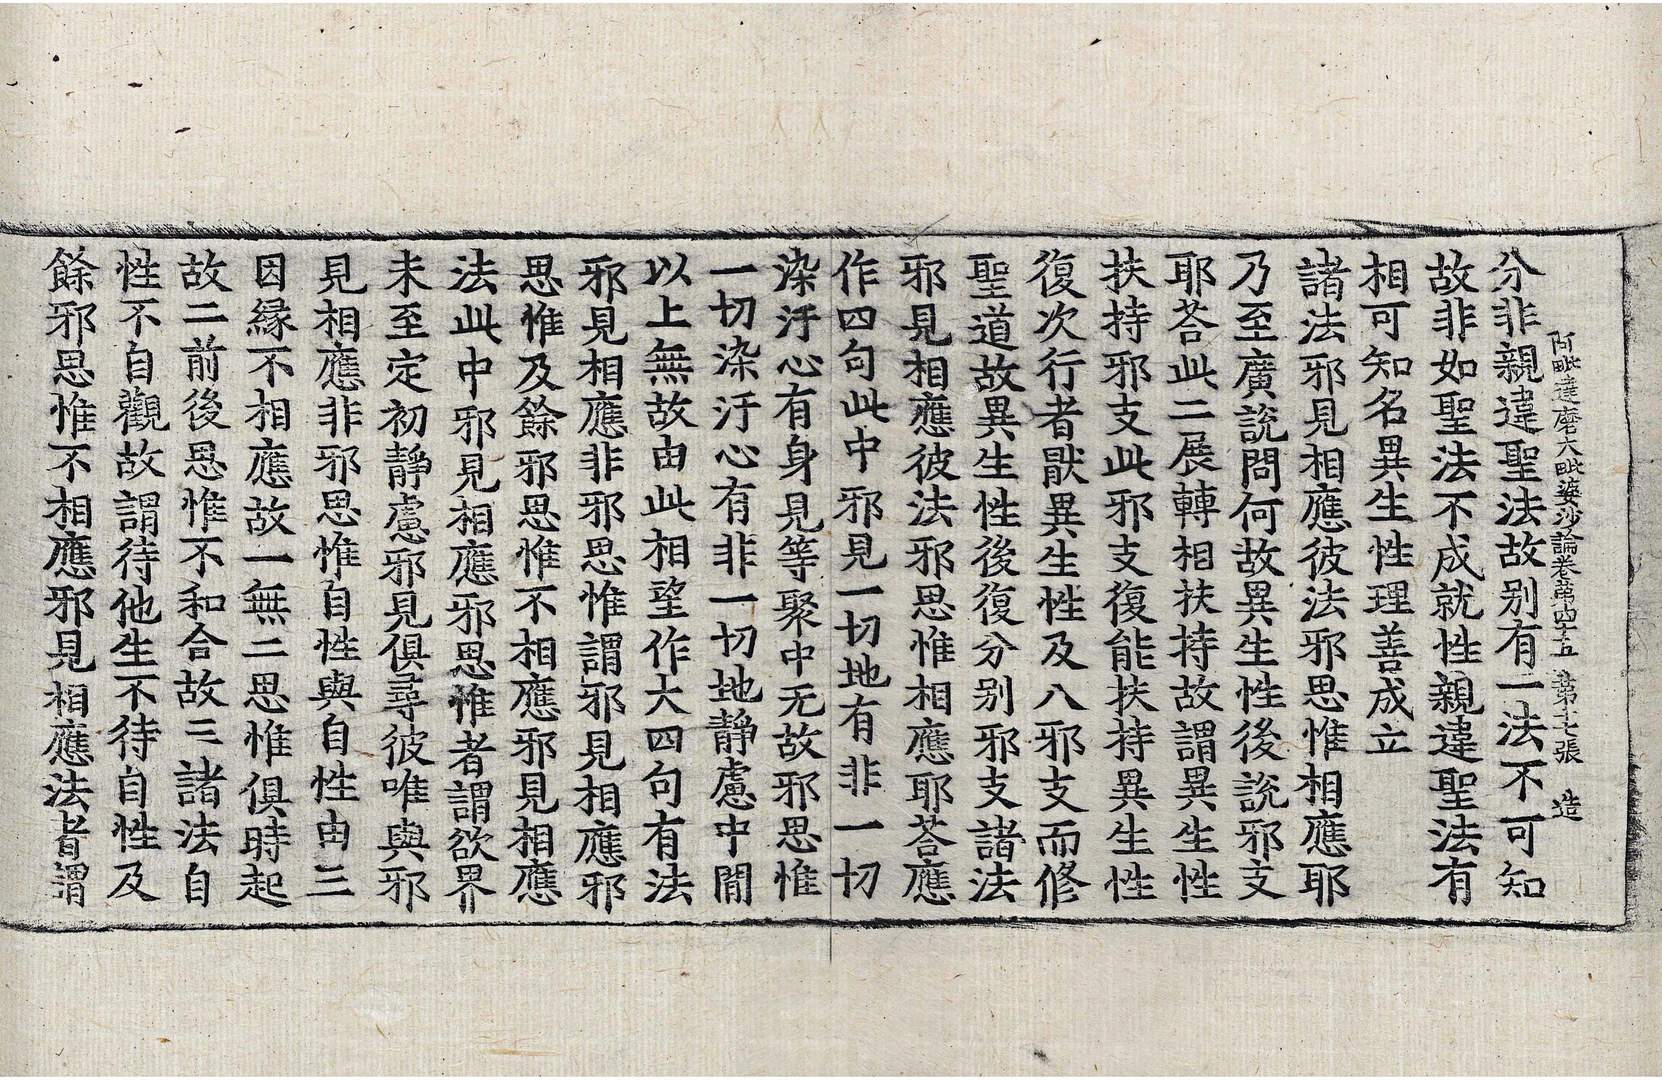 阿毗達磨大毗婆沙論卷第四十五 第十七張 造
分非親違聖法故别有一法不可知
故非如聖法不成就性親違聖法有
相可知名異生性理善成立
諸法邪見相應彼法邪思惟相應耶
乃至廣說問何故異生性後說邪支
耶荅此二展轉相扶持故謂異生性
扶持邪支此邪支復能扶持異生性
復次行者猒異生性及八邪支而修
聖道故異生性後復分别邪支諸法
邪見相應彼法邪思惟相應耶荅應
作四句此中邪見一切地有非一切
染汙心有身見等聚中无故邪思惟
一切染汙心有非一切地靜慮中閒
以上無故由此相望作大四句有法
邪見相應非邪思惟謂邪見相應邪
思惟及餘邪思惟不相應邪見相應
法此中邪見相應邪思惟者謂欲界
未至定初靜慮邪見俱尋彼唯與邪
見相應非邪思惟自性與自性由三
因緣不相應故一無二思惟俱時起
故二前後思惟不和合故三諸法自
性不自觀故謂待他生不待自性及
餘邪思惟不相應邪見相應法者謂